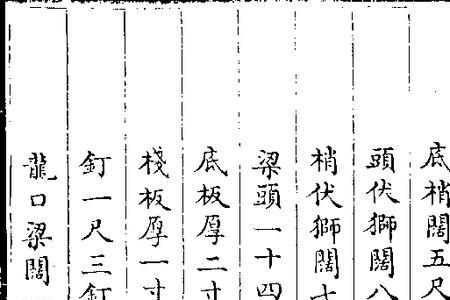 底梢闊五尺
頭伏獅闊八
梢伏獅闊
梁頭一十四
底板厚二寸
棧板厚一寸
釘一尺三釘
龍口梁闊